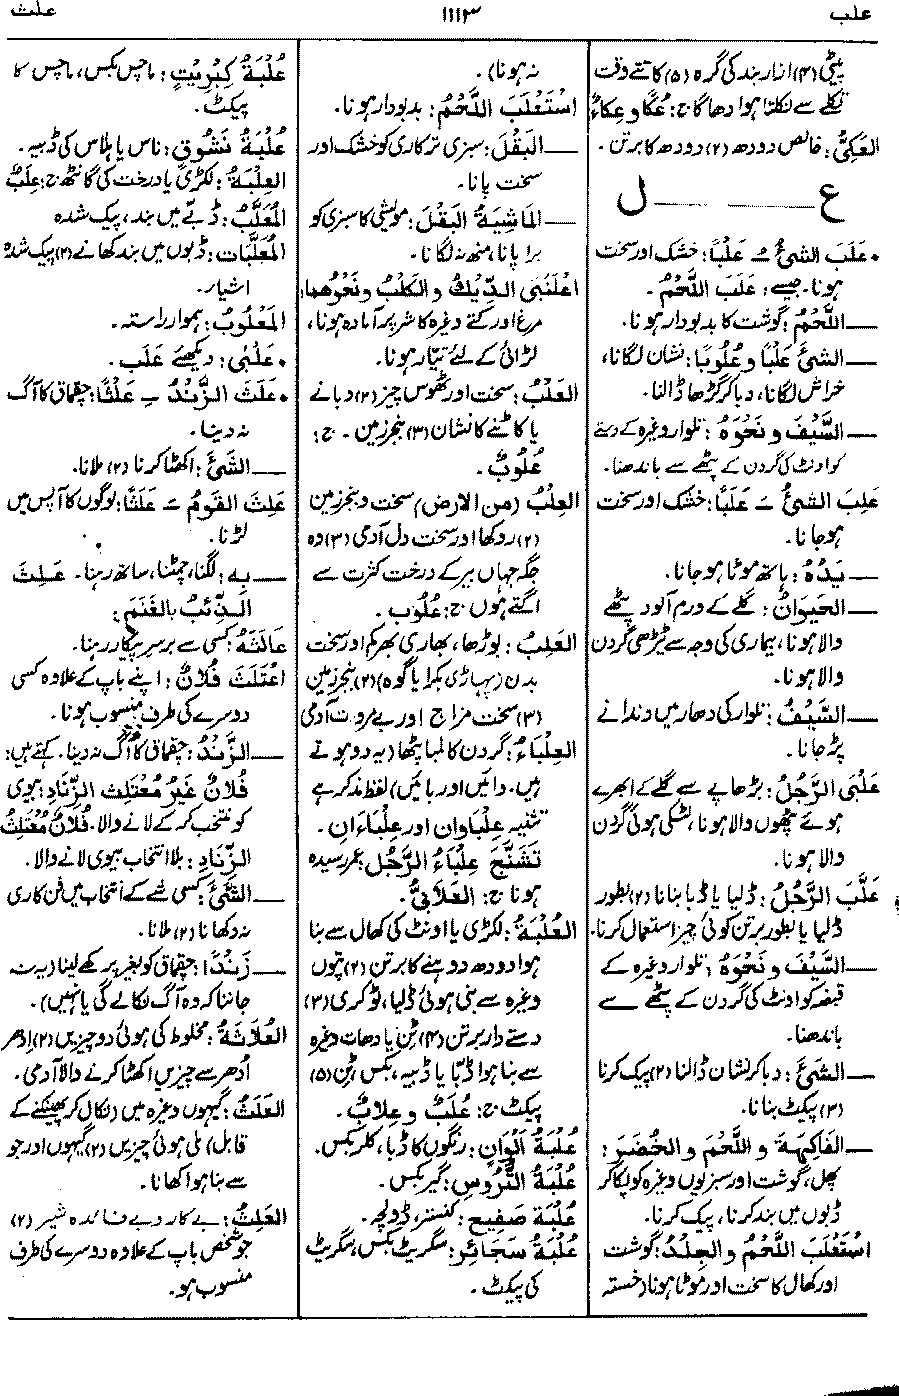 علب
۱۱۱۳
علث
پیٹی (۴) ازار بند کی گرہ (۵) کاتتے وقت
تکلے سے نکلتا ہوا دھاگا ج: عُكًا و عِكَاءٌ
العَكِيُّ: خالص دودھ (۲) دودھ کا برتن۔
ع ــــ ل
• عَلَبَ الشئُ ـُـ عَلْبًا: خشک اور سخت
ہونا۔ جیسے: عَلَبَ اللَّحْمُ۔
ــــ اللَّحْمُ: گوشت کا بدبودار ہونا۔
ــــ الشئَ عَلْبًا وعُلُوبًا: نشان لگانا،
خراش لگانا، دبا کر گڑھا ڈالنا۔
ــــ السَّيْفَ و نَحْوَهُ: تلوار وغیرہ کے دستے
کو اونٹ کی گردن کے پٹھے سے باندھنا۔
عَلِبَ الشئُ ـَـ عَلَبًا: خشک اور سخت
ہو جانا۔
ــــ يَدُهُ: ہاتھ موٹا ہو جانا۔
ــــ الحَيَوَانُ: گلے کے ورم آلود پٹھے
والا ہونا، بیماری کی وجہ سے ٹیڑھی گردن
والا ہونا۔
ــــ السَّيْفُ: تلوار کی دھار میں دندانے
پڑ جانا۔
عَلْبَى الرَّجُلُ: بڑھاپے سے گلے کے ابھرے
ہوئے پٹھوں والا ہونا، لٹکی ہوئی گردن
والا ہونا۔
عَلَّبَ الرَّجُلُ: ڈلیا یا ڈبا بنانا (۲) بطور
ڈلیا یا بطور برتن کوئی چیز استعمال کرنا۔
ــــ السَّيْفَ و نَحْوَهُ: تلوار وغیرہ کے
قبضہ کو اونٹ کی گردن کے پٹھے سے
باندھنا۔
ــــ الشئَ: دبا کر نشان ڈالنا (۲) پیک کرنا
(۳) پیکٹ بنانا۔
ــــ الفَاكِهَةَ و اللَّحْمَ و الخُضَرَ:
پھل، گوشت اور سبزیوں وغیرہ کو پکا کر
ڈبوں میں بند کرنا، پیک کرنا۔
اسْتَعْلَبَ اللَّحْمُ و الجِلْدُ: گوشت
اور کھال کا سخت اور موٹا ہونا (خستہ
نہ ہونا)۔
اسْتَعْلَبَ اللَّحْمُ: بدبودار ہونا۔
ــــ البَقْلَ: سبزی ترکاری کو خشک اور
سخت پانا۔
ــــ المَاشِيَةُ البَقْلَ: مویشی کا سبزی کو
برا پانا، منھ نہ لگانا۔
اعْلَنْبَى الدِّيْكُ و الكَلْبُ ونَحْوُهما:
مرغ اور کتے وغیرہ کا شر پر آمادہ ہونا،
لڑائی کے لئے تیار ہونا۔
العَلْبُ: سخت اور ٹھوس چیز (۲) دبانے
یا کاٹنے کا نشان (۳) بنجر زمین۔ ج:
عُلُوبٌ۔
العِلْبُ (من الارض) سخت و بنجر زمین
(۲) روکھا اور سخت دل آدمی (۳) وہ
جگہ جہاں بیر کے درخت کثرت سے
اگتے ہوں ج: عُلُوب۔
العَلِبُ: بوڑھا، بھاری بھرکم اور سخت
بدن (پہاڑی بکرا یا گوہ) (۲) بنجر زمین
(۳) سخت مزاج اور بے مروت آدمی
العِلْبَاءُ: گردن کا لمبا پٹھا (یہ دو ہوتے
ہیں۔ دائیں اور بائیں) لفظ مذکر ہے
تثنیہ عِلْبَاوان اور عِلْبَاءَانِ۔
تَشَنَّجَ عِلْبَاءُ الرَّجُلِ: عمر رسیدہ
ہونا ج: العَلَابِيُّ۔
العُلْبَةُ: لکڑی یا اونٹ کی کھال سے بنا
ہوا دودھ دوہنے کا برتن (۲) پتوں
وغیرہ سے بنی ہوئی ڈلیا، ٹوکری (۳)
دستے دار برتن (۴) ٹین یا دھات وغیرہ
سے بنا ہوا ڈبا یا ڈبیہ، بکس، ٹین (۵)
پیکٹ ج: عُلَبٌ و عِلَابٌ۔
عُلْبَةُ أَلْوَانٍ: رنگوں کا ڈبا، کلر بکس۔
عُلْبَةُ التُّرُوسِ: گیر بکس۔
عُلْبَة صَفِيحٍ: کنستر، ڈولچہ۔
عُلْبَةُ سَجَائِر: سگریٹ بکس، سگریٹ
کی پیکٹ۔
عُلْبَةُ كِبْرِيْتٍ: ماچس بکس، ماچس کا
پیکٹ۔
عُلْبَةُ نَشُوقٍ: ناس یا ہلاس کی ڈبیہ۔
العِلْبَةُ: لکڑی یا درخت کی گانٹھ ج: عِلَبٌ
المُعَلَّبُ: ڈبے میں بند، پیک شدہ
المُعَلَّبَات: ڈبوں میں بند کھانے (۲) پیک شدہ
اشیاء۔
المَعْلُوبُ: ہموار راستہ۔
• عَلْبَى: دیکھئے عَلَب۔
• عَلَثَ الزَّنْدُ ـِـ عَلْثًا: چقماق کا آگ
نہ دینا۔
ــــ الشَّئَ: اکٹھا کرنا (۲) ملانا۔
عَلِثَ القَومُ ـَـ عَلَثًا: لوگوں کا آپس میں
لڑنا۔
ــــ بِهِ: لگنا، چمٹنا، ساتھ رہنا۔ عَلِثَ
الذِّئبُ بالغَنَمِ:
عَالَثَهُ: کسی سے برسر پیکار رہنا۔
اعْتَلَثَ فُلَانٌ: اپنے باپ کے علاوہ کسی
دوسرے کی طرف منسوب ہونا۔
ــــ الزَّنْدُ: چقماق کا آگ نہ دینا۔ کہتے ہیں:
فُلَانٌ غَيْرُ مُعْتَلِثِ الزِّنَادِ: بیوی
کو منتخب کر کے لانے والا۔ فُلَانٌ مُعْتَلِثُ
الزِّنَادِ: بلا انتخاب بیوی لانے والا۔
ــــ الشَّئَ: کسی شے کے انتخاب میں فن کاری
نہ دکھانا (۲) ملانا۔
ــــ زَنْدًا: چقماق کو بغیر پرکھے لینا (یہ نہ
جاننا کہ وہ آگ نکالے گی یا نہیں)۔
العُلَاثَةُ: مخلوط کی ہوئی دو چیزیں (۲) اِدھر
اُدھر سے چیزیں اکٹھا کرنے والا آدمی۔
العَلَثُ: گیہوں وغیرہ میں (نکال کر پھینکنے کے
قابل) ملی ہوئی چیزیں (۲) گیہوں اور جو
سے بنا ہوا کھانا۔
العَلِثُ: بے کار و بے فائدہ شیر (۲)
جو شخص باپ کے علاوہ دوسرے کی طرف
منسوب ہو۔